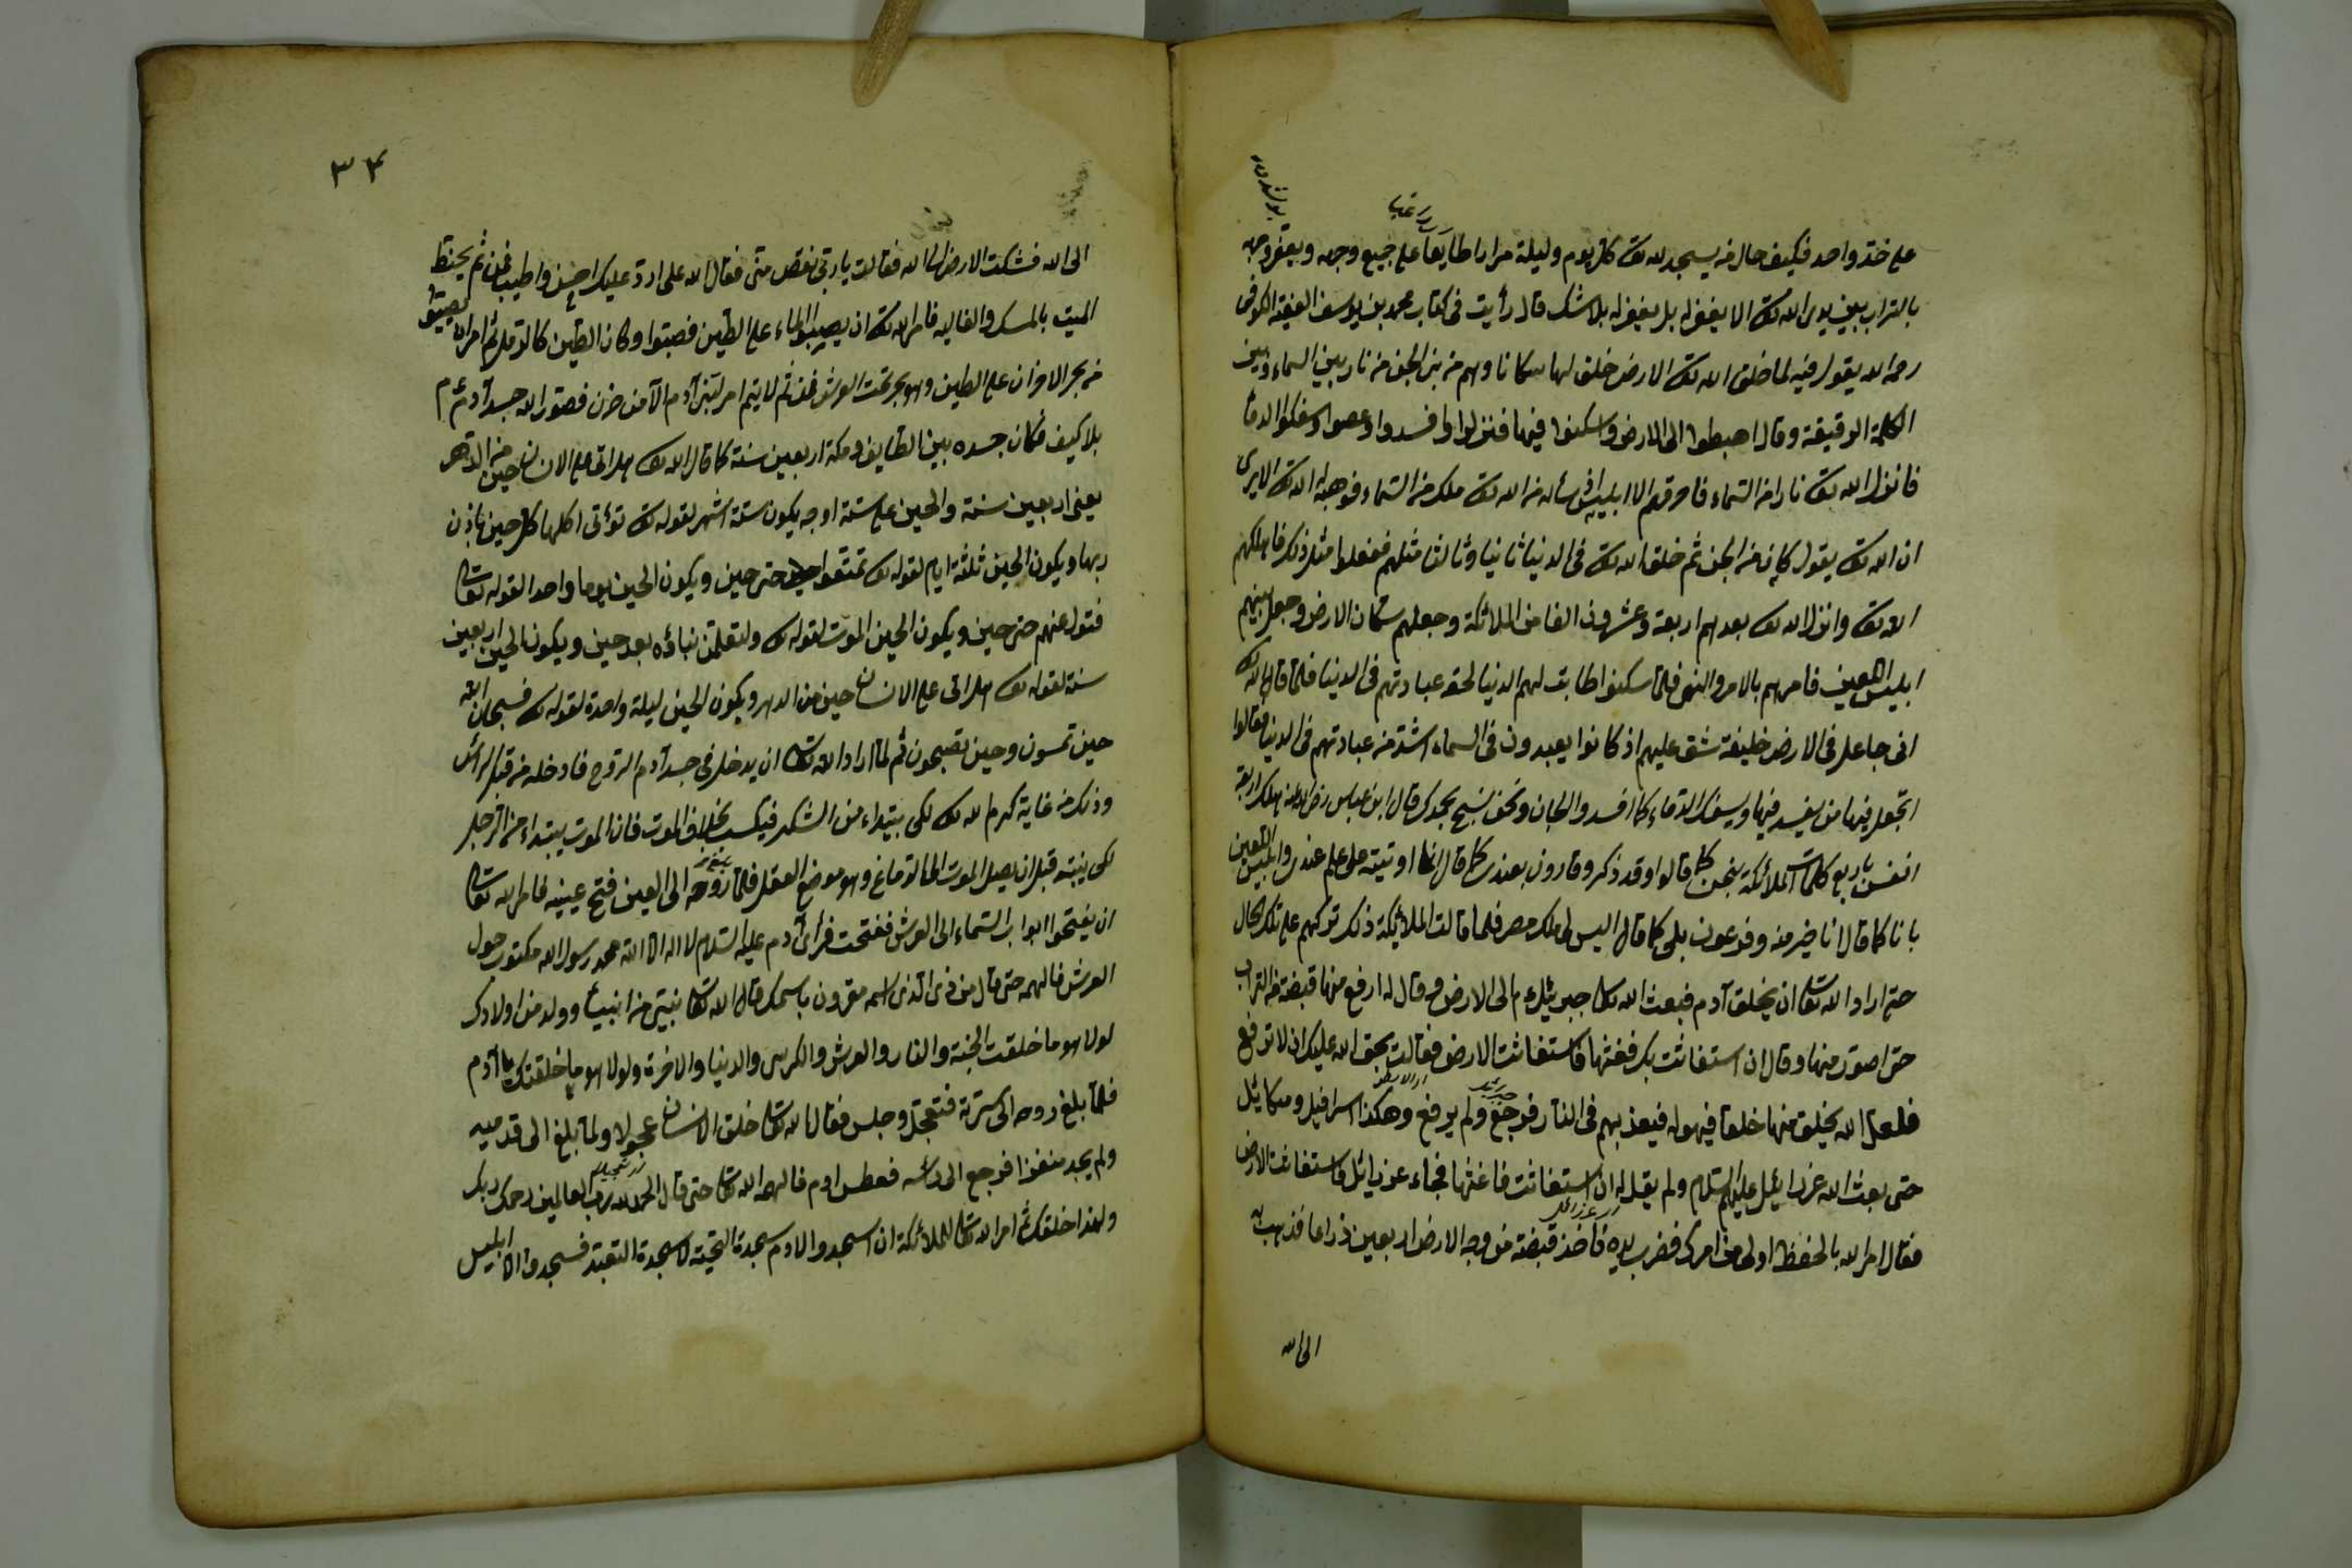 على خد واحد فكيف حال من يسجد لله تعالى كل يوم وليلة مرارا طايعا على جميع وجهه ويعفر وجهه
بالتراب بين يدي الله تعالى الا يغفر له بل يغفر له بلا شك قال رأيت في كتاب محمد بن يوسف الفقيه الكوفي
رحمه الله يقول فيه لما خلق الله تعالى الارض خلق لها سكانا وهم من بني الجن من نار بين السماء وبين
الكلمة الرقيقة وقال اهبطوا الى الارض واسكنوا فيها فنزلوا وافسدوا وعصوا وسفكوا الدما
فانزل الله تعالى نارا من السماء فاحرقهم الا ابليس سأله من الله تعالى ملك من السماء فوهبه الله تعالى الا يرى
ان الله تعالى يقول كان من الجن ثم خلق الله تعالى في الدنيا ثانيا وثالثا مثلهم ففعلوا مثل ذلك فاهلكهم
الله تعالى وانزل الله تعالى بعدهم اربعة وعشرون الفا من الملائكة وجعلهم سكان الارض وجعل بينهم
ابليس اللعين فامرهم بالامر والنهي فلما سكنوا طابت لهم الدنيا لخفة عبادتهم في الدنيا فلما قال الله تعالى
اني جاعل في الارض خليفة شق عليهم اذ كانوا يعبدون في السماء اشد من عبادتهم في الدنيا فقالوا
اتجعل فيها من يفسد فيها ويسفك الدماء كما افسدوا الجان ونحن نسبح بحمدك قال ابن عباس رضي الله عنه هلك اربعة
انفس باربع كلمات الملائكة بنحن كما قالوا وقد ذكر وقارون بعندي كما قال انما اوتيته على علم عندي وابليس اللعين
بانا كما قال انا خير منه وفرعون بلي كما قال اليس لي ملك مصر فلما قالت الملائكة ذلك تركهم على تلك الحال
حتى اراد الله تعالى ان يخلق آدم فبعث الله تعالى جبريل عم الى الارض وقال له ارفع منها قبضة من التراب
حتى اصور منها وقال ان استغاثت بك فغثها فاستغاثت الارض فقالت بحق الله عليك ان لا ترفع
فلعل الله يخلق منها خلقا فيهوله فيعذبهم في النار فرجع ولم يرفع وهكذا اسرافيل وميكائيل
حتى بعث الله عزرائيل عليهم السلام ولم يقل له ان استغاثت فاغثها فجاء عزرائل فاستغاثت الارض
فقال امر الله بالحفظ اولى من امرك فضرب يده فاخذ قبضة من وجه الارض اربعين ذراعا فذهب به
الى الله
٣٤
الى الله فشكت الارض الى الله فقالت يا رب نقص مني فقال الله على ارد عليك احسن واطيب فمن ثم يحنط
الميت بالمسك والغاليه فامر الله تعالى ان يصبوا الماء على الطين فصبوا وكان الطين كالرمل ثم امر ان
من بحر الاحزان على الطين وهو بحر تحت العرش فمن ثم لا يتم امر لبني آدم الا من حزن فصور الله جسد آدم عم
بلا كيف فكان جسده بين الطايف ومكة اربعين سنة كما قال الله تعالى هل اتى على الانسان حين من الدهر
يعني اربعين سنة والحين على ستة اوجه يكون ستة اشهر لقوله تعالى تؤتى اكلها كل حين باذن
ربها ويكون الحين ثلثة ايام لقوله تعالى تمتعوا حتى حين ويكون الحين يوما واحدا لقوله تعالى
فتول عنهم حتى حين ويكون الحين الموت لقوله تعالى ولتعلمن نباؤه بعد حين ويكون الحين اربعين
سنة لقوله تعالى هل اتى على الانسان حين من الدهر ويكون الحين ليلة واحدة لقوله تعالى فسبحان الله
حين تمسون وحين تصبحون ثم لما اراد الله تعالى ان يدخل في جسد آدم الروح فادخله من قبل الرأس
وذلك من غاية كرم الله تعالى لكي يبتداء من الشكر فيكسب بخلاف الموت فان الموت يبتداء من الرجل
لكي ينبته قبل ان يصل الموت الى الدماغ وهو موضع العقل فلما روحه الى العين فتح عينيه فامر الله تعالى
ان يفتحوا ابواب السماء الى العرش ففتحت فرأى آدم عليه السلام لا اله الا الله محمد رسول الله مكتوب حول
العرش فالهمه حتى قال من ذي الذي اسمه مقرون باسمك قال الله تعالى نبي من انبيأ وولد من اولادك
لولا هو ما خلقت الجنة والنار والعرش والكرسي والدنيا والاخرة ولولا هو ما خلقتك يا آدم
فلما بلغ روحه الى سرته فتعجل وجلس فقال الله تعالى خلق الانسان عجولا ولما بلغ الى قدميه
ولم يجد منفذا فرجع الى رأسه فعطس ادم فالهمه الله تعالى حتى قال الحمد لله رب العالمين رحمك ربك
ولهذا خلقتك ثم امر الله تعالى الملائكة ان اسجدوا لادم سجدة التحية لا سجدة التعبد فسجدوا الا ابليس